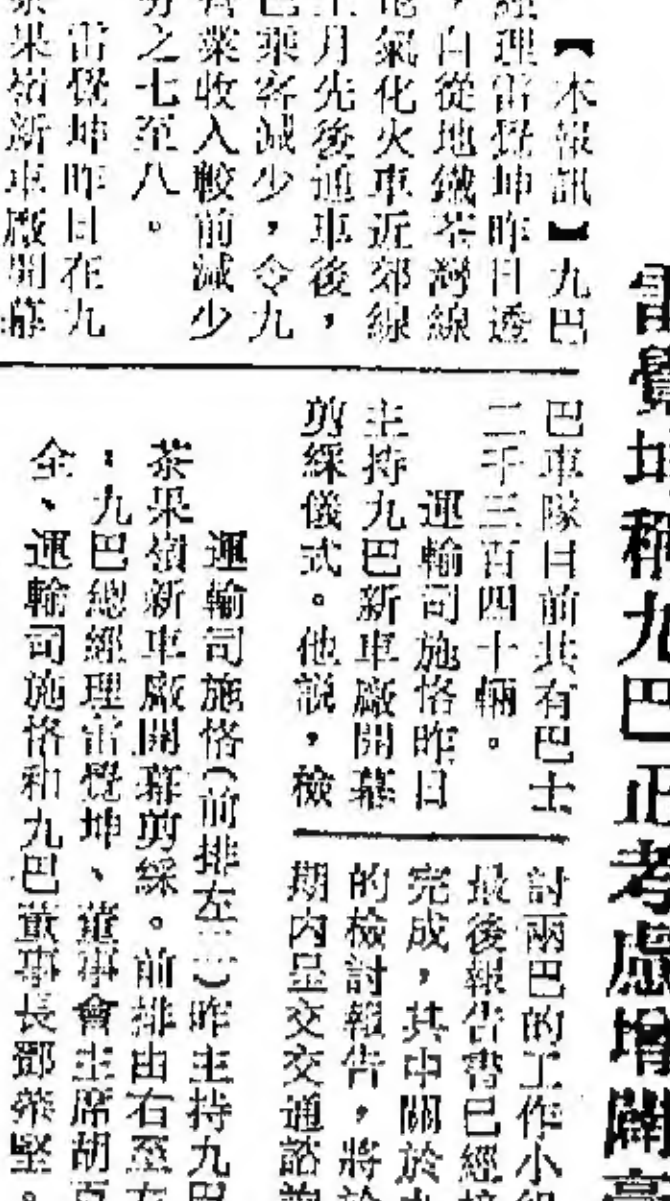 雷覺坤稱九巴正考慮增闢豪
【本報訊】九巴
經理雷覺坤昨日透
，自從地鐵荃灣線
電氣化火車近郊線
上月先後通車後，
巴乘客減少，令九
營業收入較前減少
分之七至八。
雷覺坤昨日在九
茶果嶺新車廠開幕
巴車隊目前共有巴士
二千三百四十輛。
運輸司施恪昨日
主持九巴新車廠開幕
剪綵儀式。他説，檢
討兩巴的工作小組
最後報告書已經
完成，其中關於九
的檢討報告，將於
期內呈交交通諮詢
運輸司施恪（前排左三）昨主持九巴
茶果嶺新車廠開幕剪綵。前排由右至左
：九巴總經理雷覺坤、董事會主席胡百
全、運輸司施恪和九巴董事長鄧榮堅。